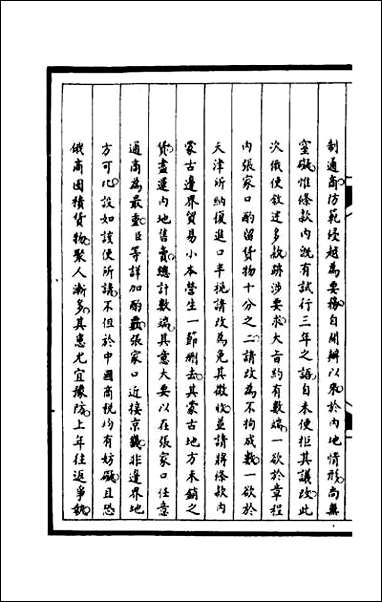 制通商防範侵越為要務自開辦以來於内地情形尚無
窒礙惟條款内既有試行三年之語自未便拒其議改此
次俄使敘述多款跡涉要求大旨約有數端一欲於章程
内張家口酌留貨物十分之二請改為不拘成數一欲於
天津所納復進口半稅請改為免其徵收並請將條款内
蒙古邊界貿易小本營生一節刪去其蒙古地方未銷之
貨盡運内地售賣總計數端其意大要以在張家口任意
通商為最重臣等詳加酌覈張家口近接京畿非邊界地
方可比設如該使所請不但於中國商稅均有妨礙且恐
俄商囤積貨物聚人漸多其患尤宜豫防上年往返爭執